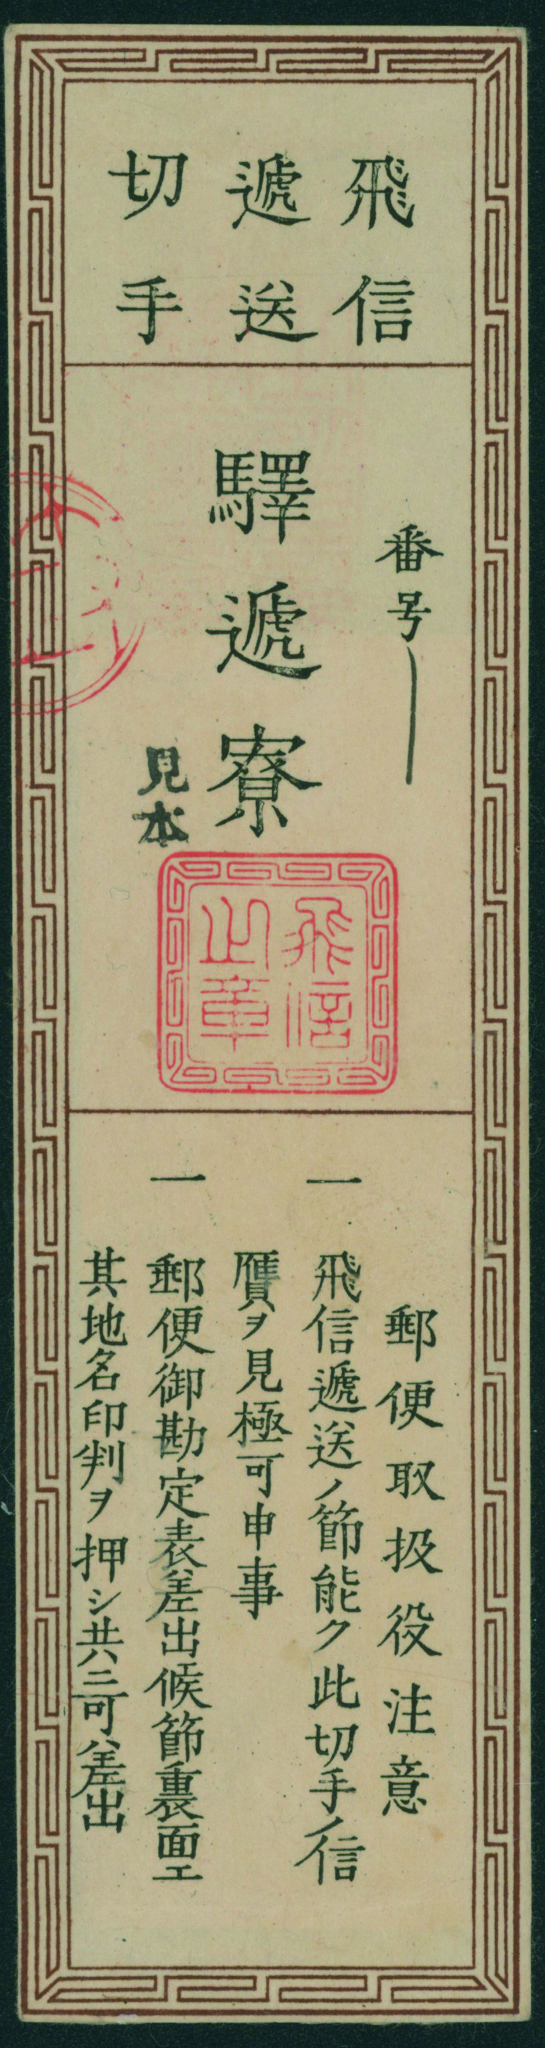 飛信
遞送
切手
番号
驛遞寮
見本
飛信
之章
郵便取扱役注意
一 飛信遞送ノ節能ク此切手ノ信
贋ヲ見極可申事
一 郵便御勘定表差出候節裏面エ
其地名印判ヲ押シ共ニ可差出